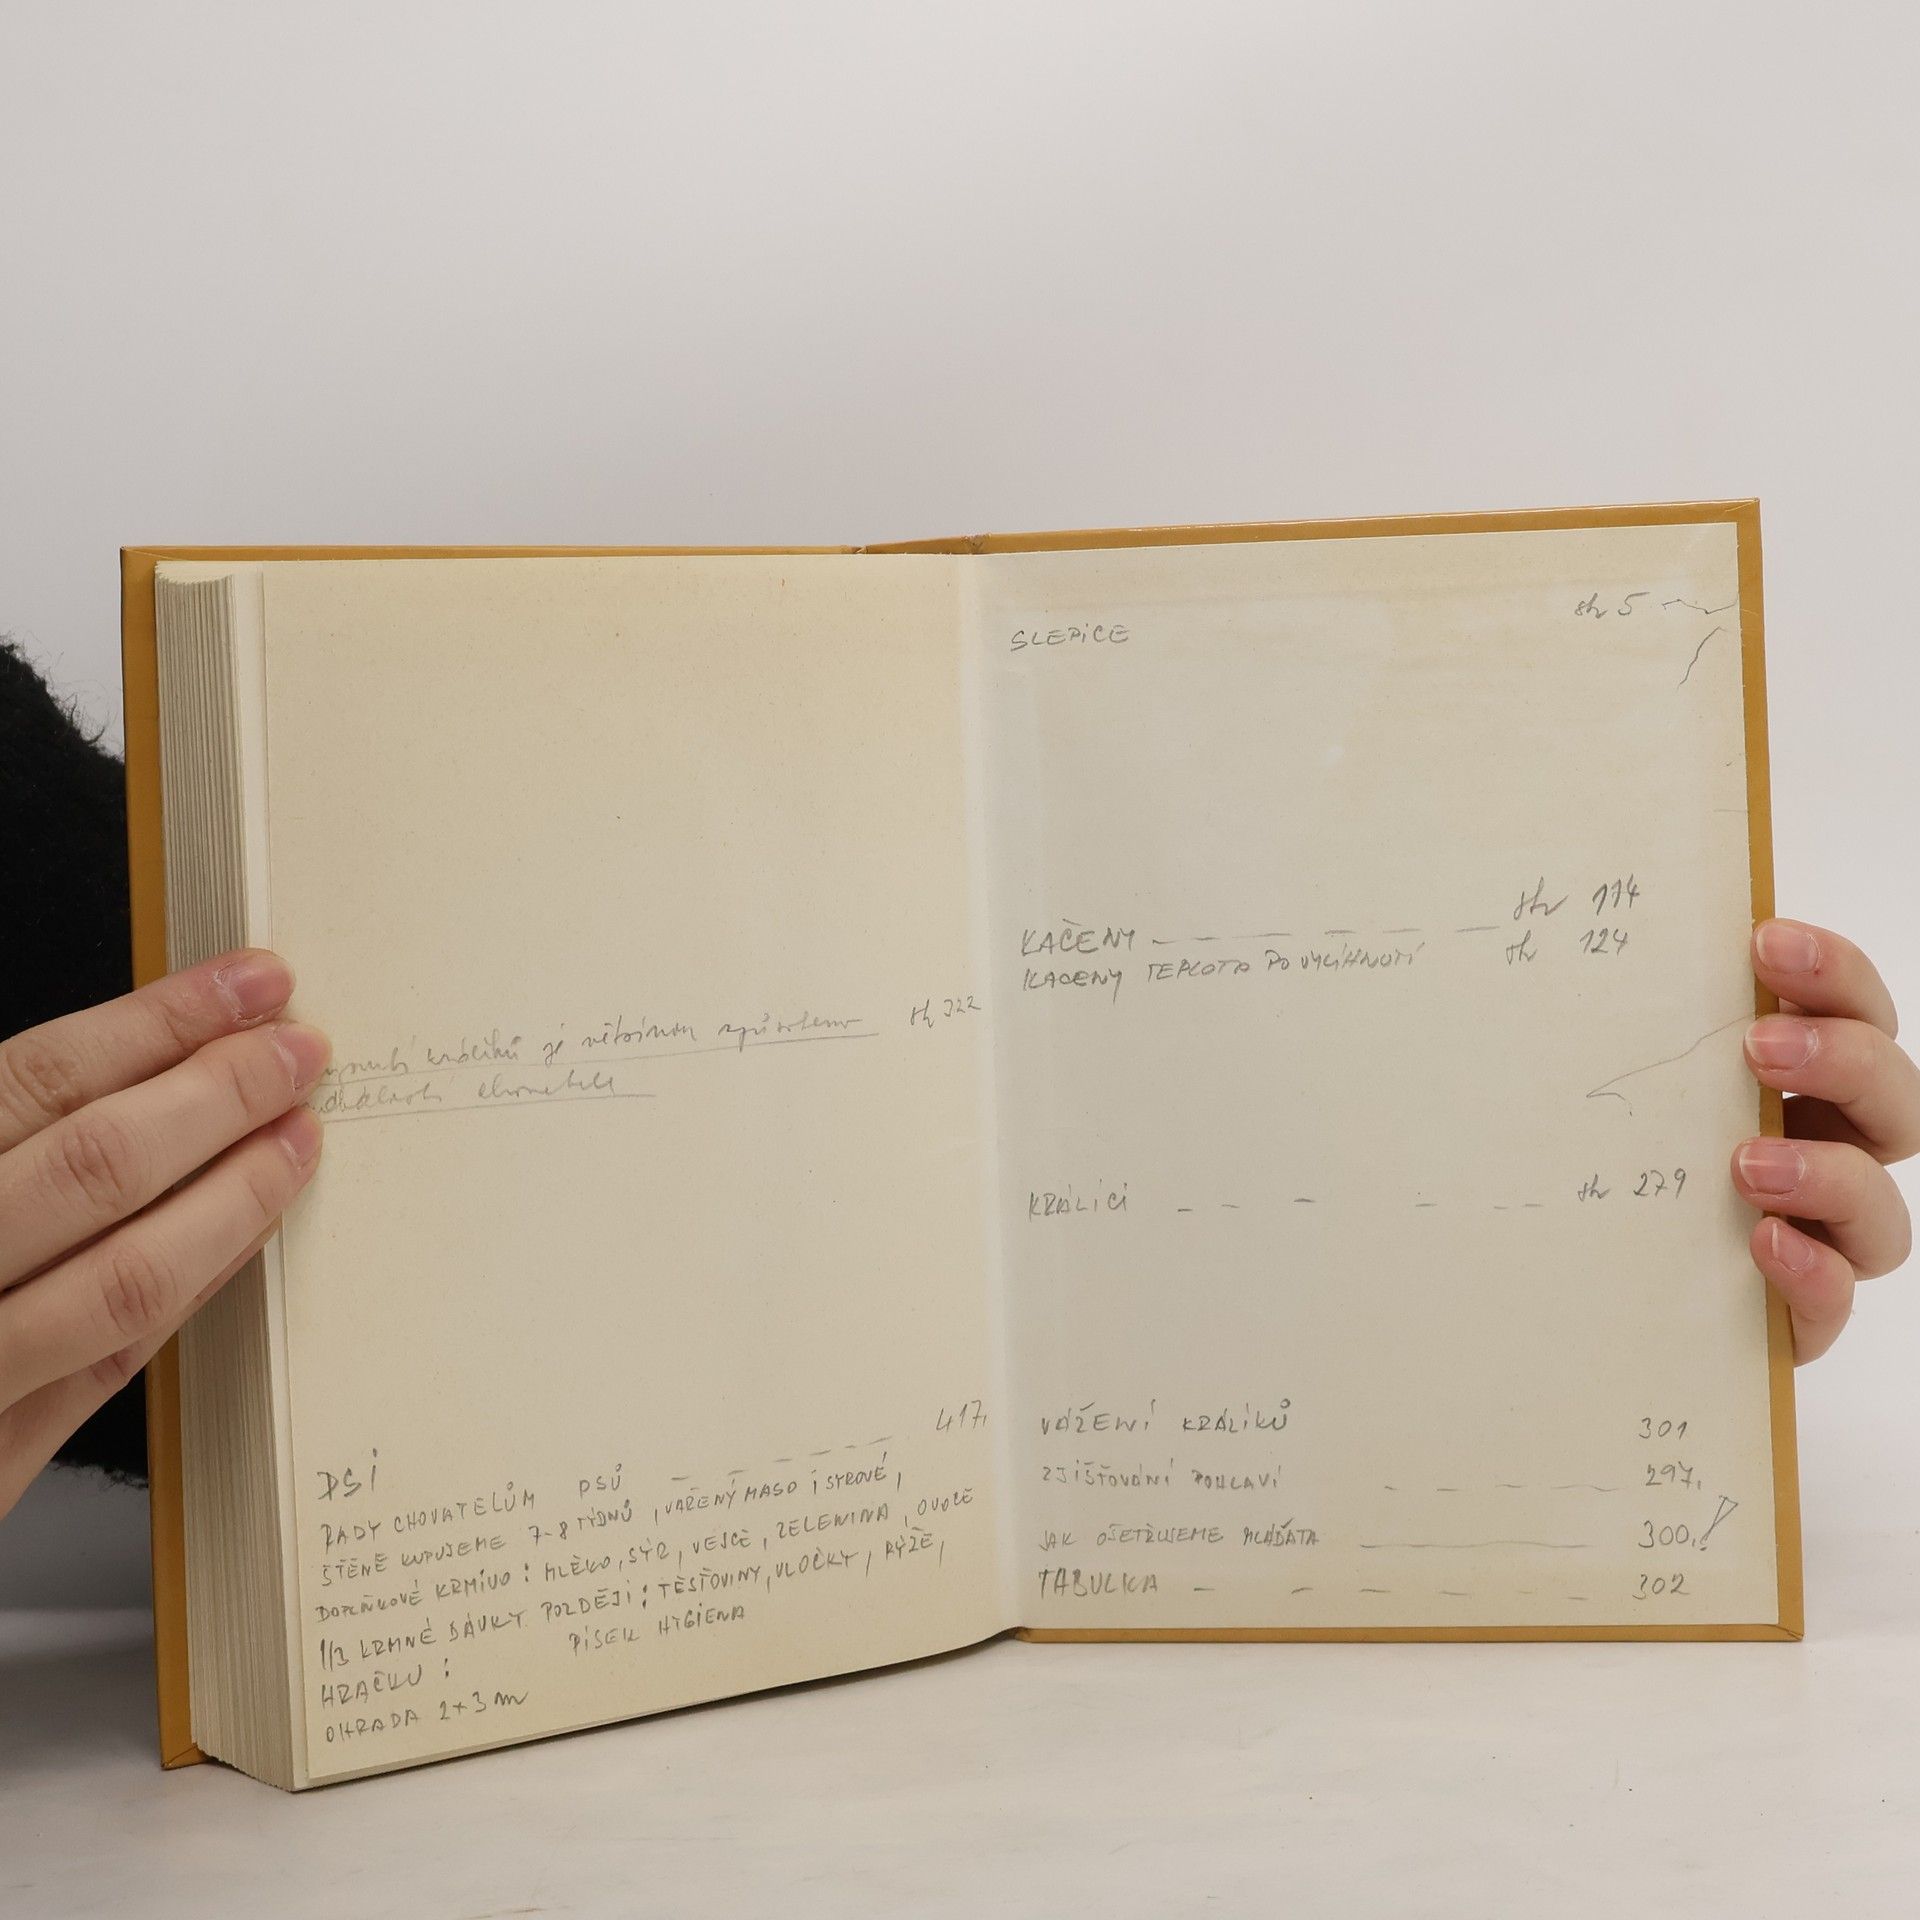 králíků je většinou způsobeno str 322
chovatele
PSI
RADY CHOVATELŮM PSŮ _ _ _ _ _ _ 417.
ŠTĚNĚ KUPUJEME 7-8 TÝDNŮ, VAŘENÝ MASO I SYROVÉ,
DOPLŇKOVÉ KRMIVO: MLÉKO, SÝR, VEJCE, ZELENINA, OVOCE
1/3 KRMNÉ DÁVKY POZDĚJI: TĚSTOVINY, VLOČKY, RÝŽE,
HRAČKU: PÍSEK HYGIENA
OHRADA 2x3 m
str 5
SLEPICE
KAČENY _ _ _ _ _ _ str 174
KACENY TEPLOTA PO VYLÍHNUTÍ str 124
KRÁLÍCI _ _ _ _ _ _ str 279
VÁŽENÍ KRÁLÍKŮ 301
ZJIŠŤOVÁNÍ POHLAVÍ _ _ _ _ _ 297.
JAK OŠETŘUJEME MLÁĎATA _____ 300.!
TABULKA _ _ _ _ _ _ 302